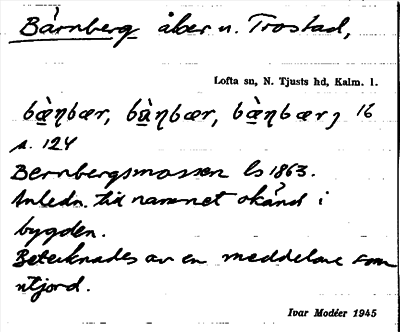 Bårnberg åker u. Trostad,
Lofta sn, N. Tjusts hd, Kalm. l.
bæ̀ŋbær, bàŋbær, bæ̀ŋbærȷ 16
s. 124
Bernbergsmossen ls 1863.
Anledn. till namnet okänd i
bygden.
Betecknades av en meddelare som
utjord.
Ivar Modéer 1945